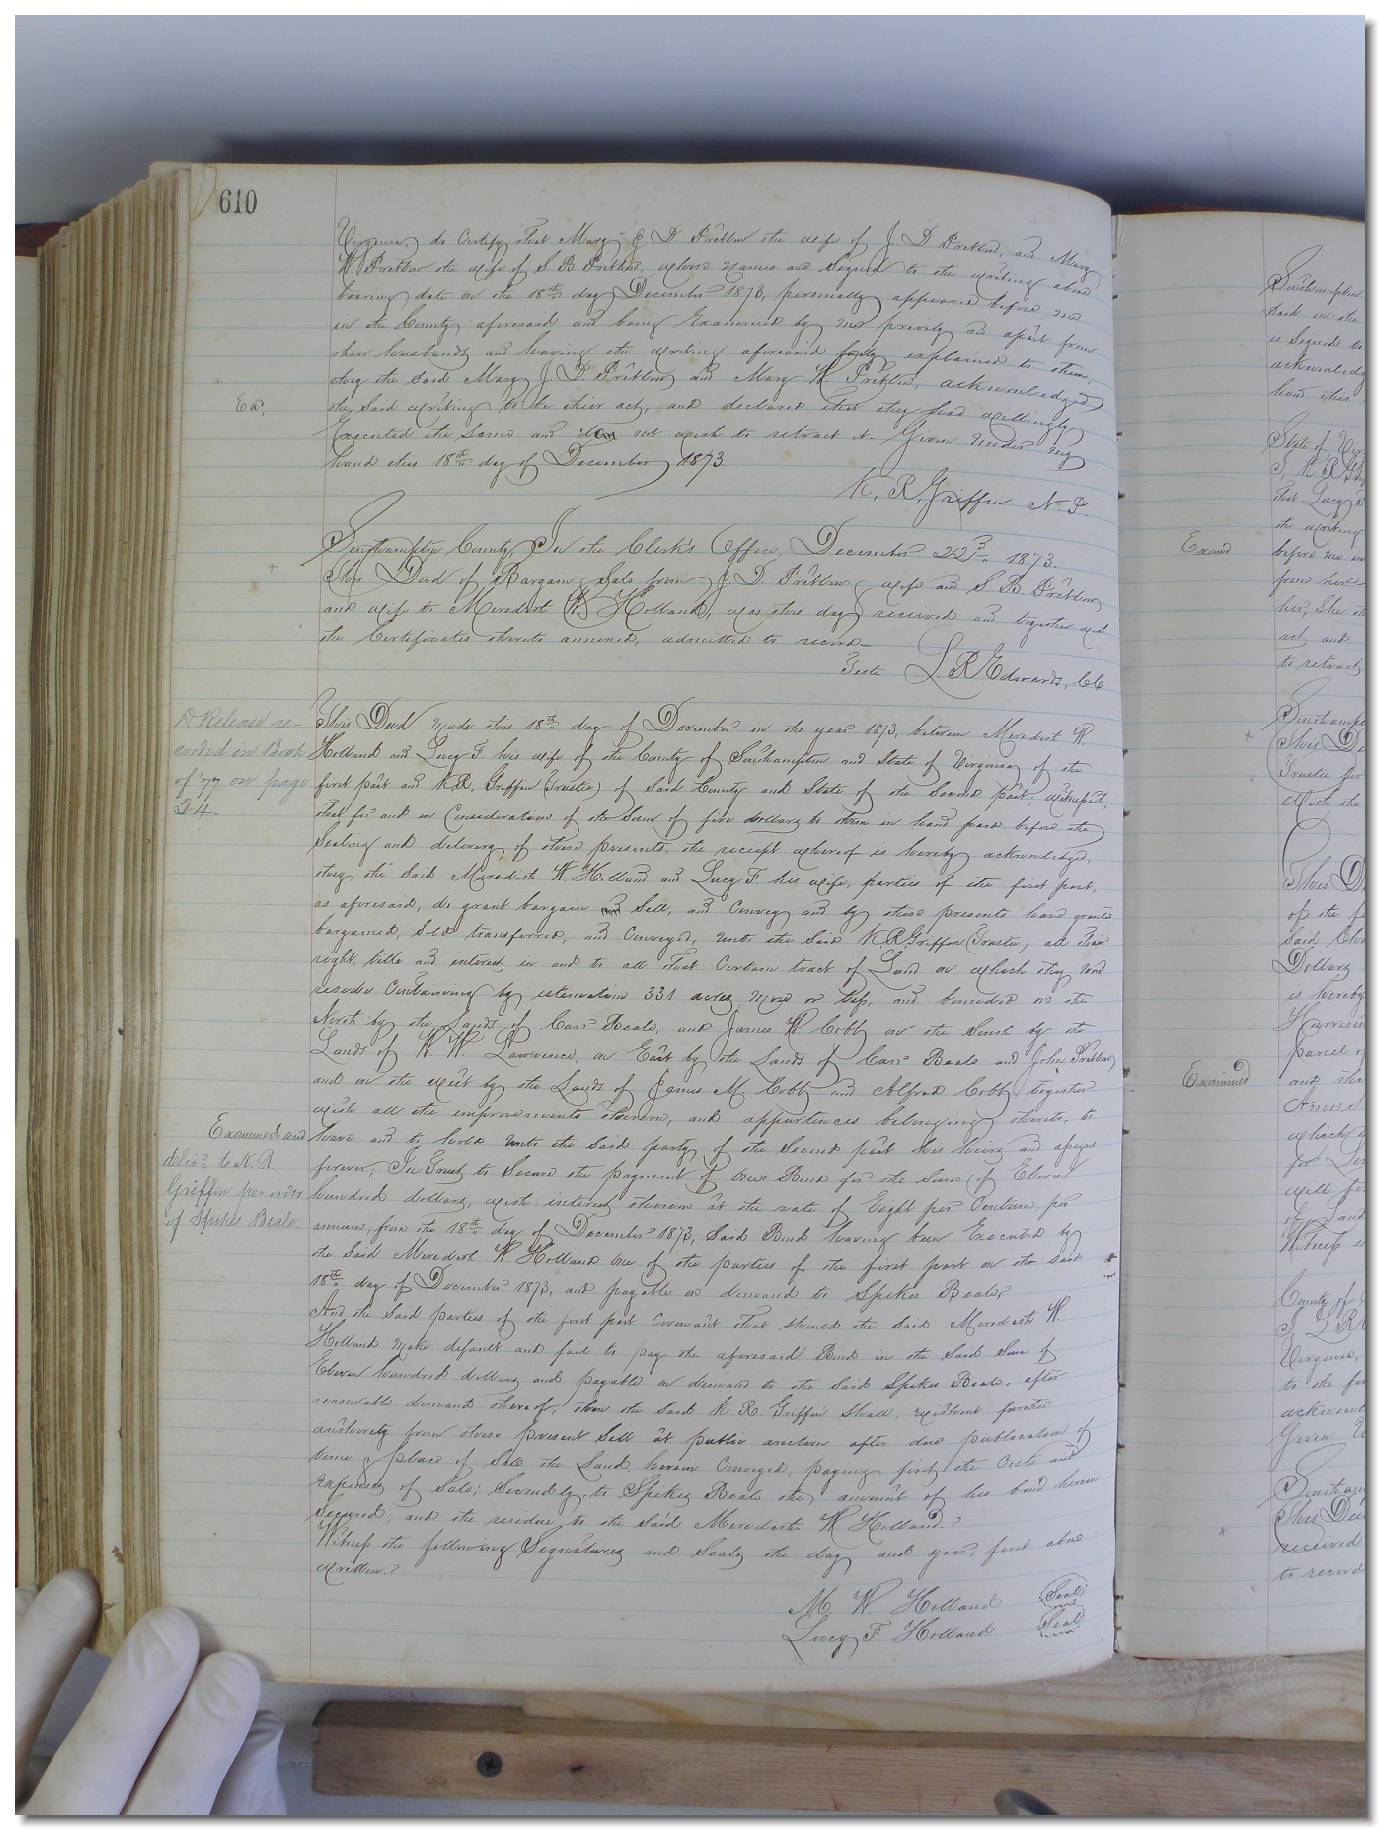 610
Virginia, do Certify that Mary E. D. Pretlow the wife of J. D Pretlow, and Mary
W Pretlow the wife of S. B Pretlow, whose names are signed to the writing above
bearing date on the 18th day December 1873, personally appeared before me
in the County aforesaid and being Examined by me privily and apart from
their husbands and having the writing aforesaid fully explained to them,
they the said Mary J. D. Pretlow and Mary W. Pretlow, acknowledged
Ex.
the said writing to be their act, and declared that they had willingly
Executed the same and do not wish to retract it. Given under my
hand this 18th day of December 1873.
K. R. Griffin N. P.
Southampton County, In the Clerk's Office, December 22d, 1873.
This Deed of Bargain & Sale from J. D. Pretlow & wife and S B Pretlow
and wife to Meredith W. Holland, was this day received and together with
the Certificates thereto annexed, admitted to record.
Teste L. R Edwards, CC
A Release re-
corded in Book
of '77 on page
34.
This Deed made this 18th day of December in the year 1873, between Meredith W.
Holland and Lucy F his wife of the County of Southampton and State of Virginia of the
first part and K. R. Griffin (Trustee) of said County and State of the second part, Witnesseth,
that for and in Consideration of the sum of five dollars to them in hand paid before the
Sealing and delivery of these presents, the receipt whereof is hereby acknowledged,
they the said Meredith W. Holland and Lucy F. his wife, parties of the first part,
as aforesaid, do grant bargain and Sell, and Convey and by these presents have granted
bargained, sold transferred, and Conveyed, unto the said K R Griffin (Trustee, all their
right, title and interest, in and to all that Certain tract of Land on which they now
reside Containing by estimation 331 acres, more or less, and bounded on the
North by the Lands of Carr Beale, and James W. Cobb on the South by the
Lands of W. W. Lawrence, on East by the Lands of Carr Beale and John Pretlow,
and on the west by the Lands of James M Cobb and Alfred Cobb, together
with all the improvements thereon, and appurtinences belonging thereto, to
Examined and
deliv'd to K. R.
Griffin per order
of Spikes Beale.
have and to hold unto the said party of the second part his heirs and assigns
forever, In Trust, to Secure the payment of one Bond for the Sum of Eleven
hundred dollars, with interest thereon at the rate of Eight per Centum, per
annum, from the 18th day of December 1873, said Bond having been Executed by
the said Meredith W Holland one of the parties of the first part on the said
18th day of December 1873, and payable on demand to Spikes Beale.
And the said parties of the first part Covenant that should the said Meredith W.
Holland make default and fail to pay the aforesaid Bond in the said Sum of
Eleven hundred dollars and payable on demand to the said Spikes Beale, after
reasonable demand thereof, then the said K. R. Griffin shall, without further
authority from these present Sell at public auction after due publication of
time & place of sale the Land herein Conveyed, paying first, the Costs and
expenses of Sale; Secondly, to Spikes Beale the amount of his bond herein
Secured, and the residue to the said Meredith W Holland.
Witness the following Signatures and Seals the day and year, first above
written.
M. W. Holland Seal
Lucy F Holland Seal
Southampton
Said in the
is signed to
hand this
State of Vir
that Lucy
the writing
Exand
before me in
from her
her, she
act and
to retract
Trustee for
This D
of the
Dollars
is hereby
parcel
Examined
which
Witness
County of
Virginia,
to the
Given
received
to record